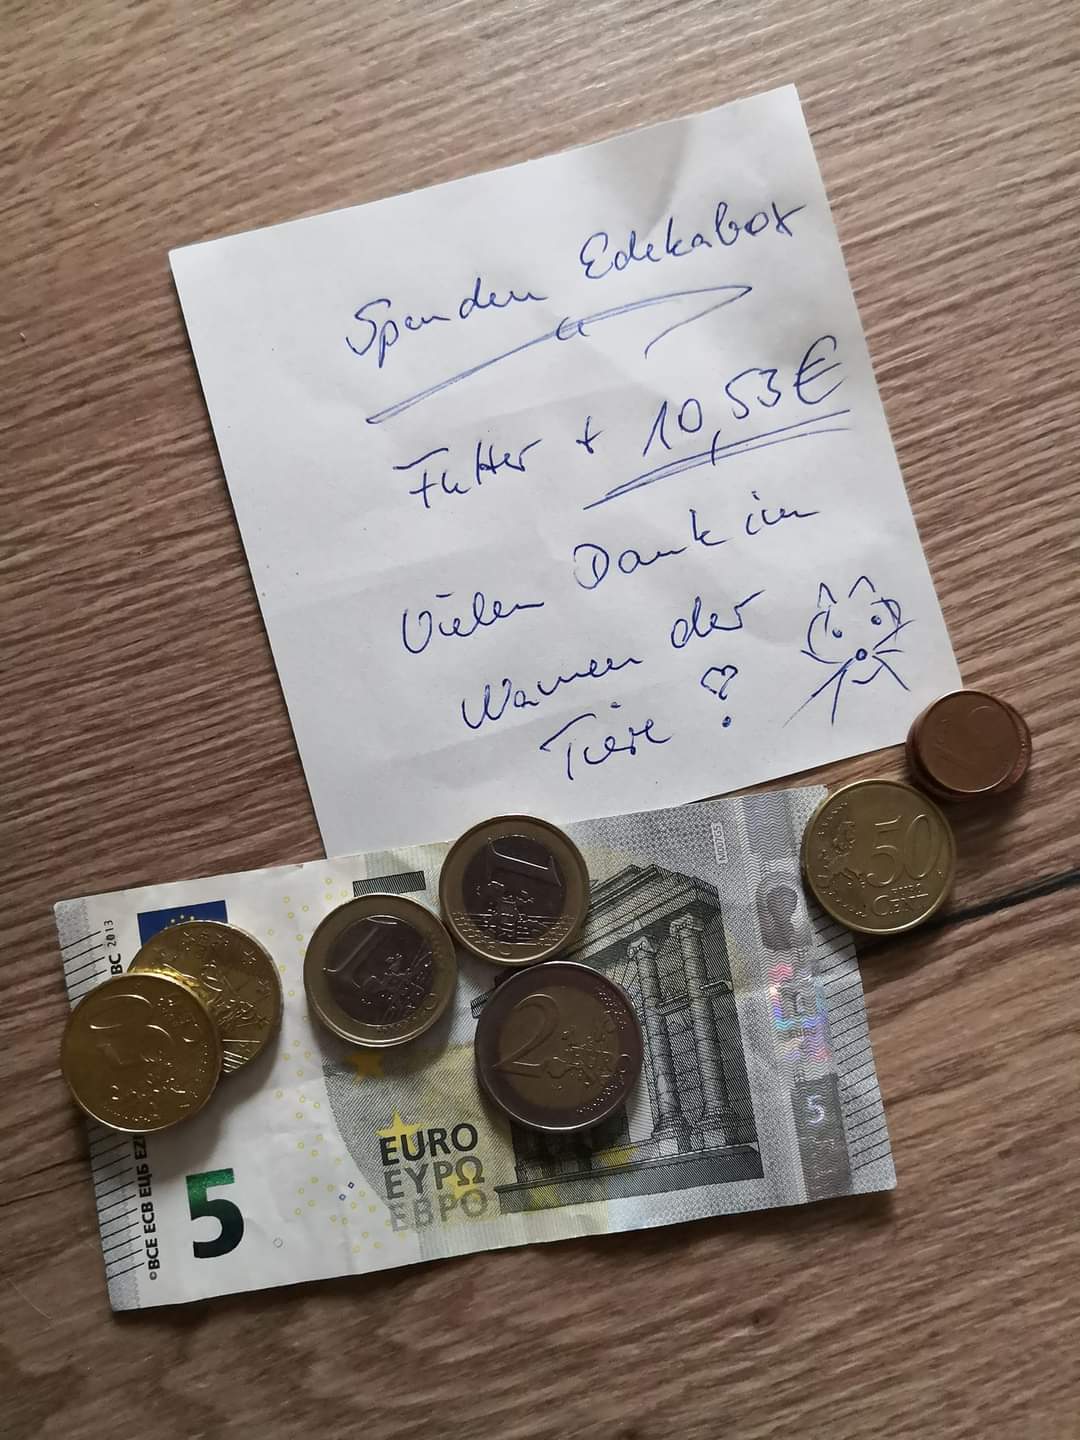 Spenden Edekabox
Futter + 10,53€
Vielen Dank im
Namen der
Tiere
1
50
EURO
CENT
1
2
EURO
ΕΥΡΩ
ЕВРО
5
5
2013
©BCE ECB ЕЦБ EZB